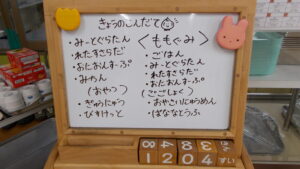 きょうのこんだて
・みーとぐらたん
・れたすさらだ
・おにおんすーぷ
・みかん
(おやつ)
・ぎゅうにゅう
・びすけっと
<ももぐみ>
・ごはん
・みーとぐらたん
・れたすさらだ
・おにおんすーぷ
(ごごしょく)
・おやさいにゅうめん
・ばななとうふ
8
1204
すい